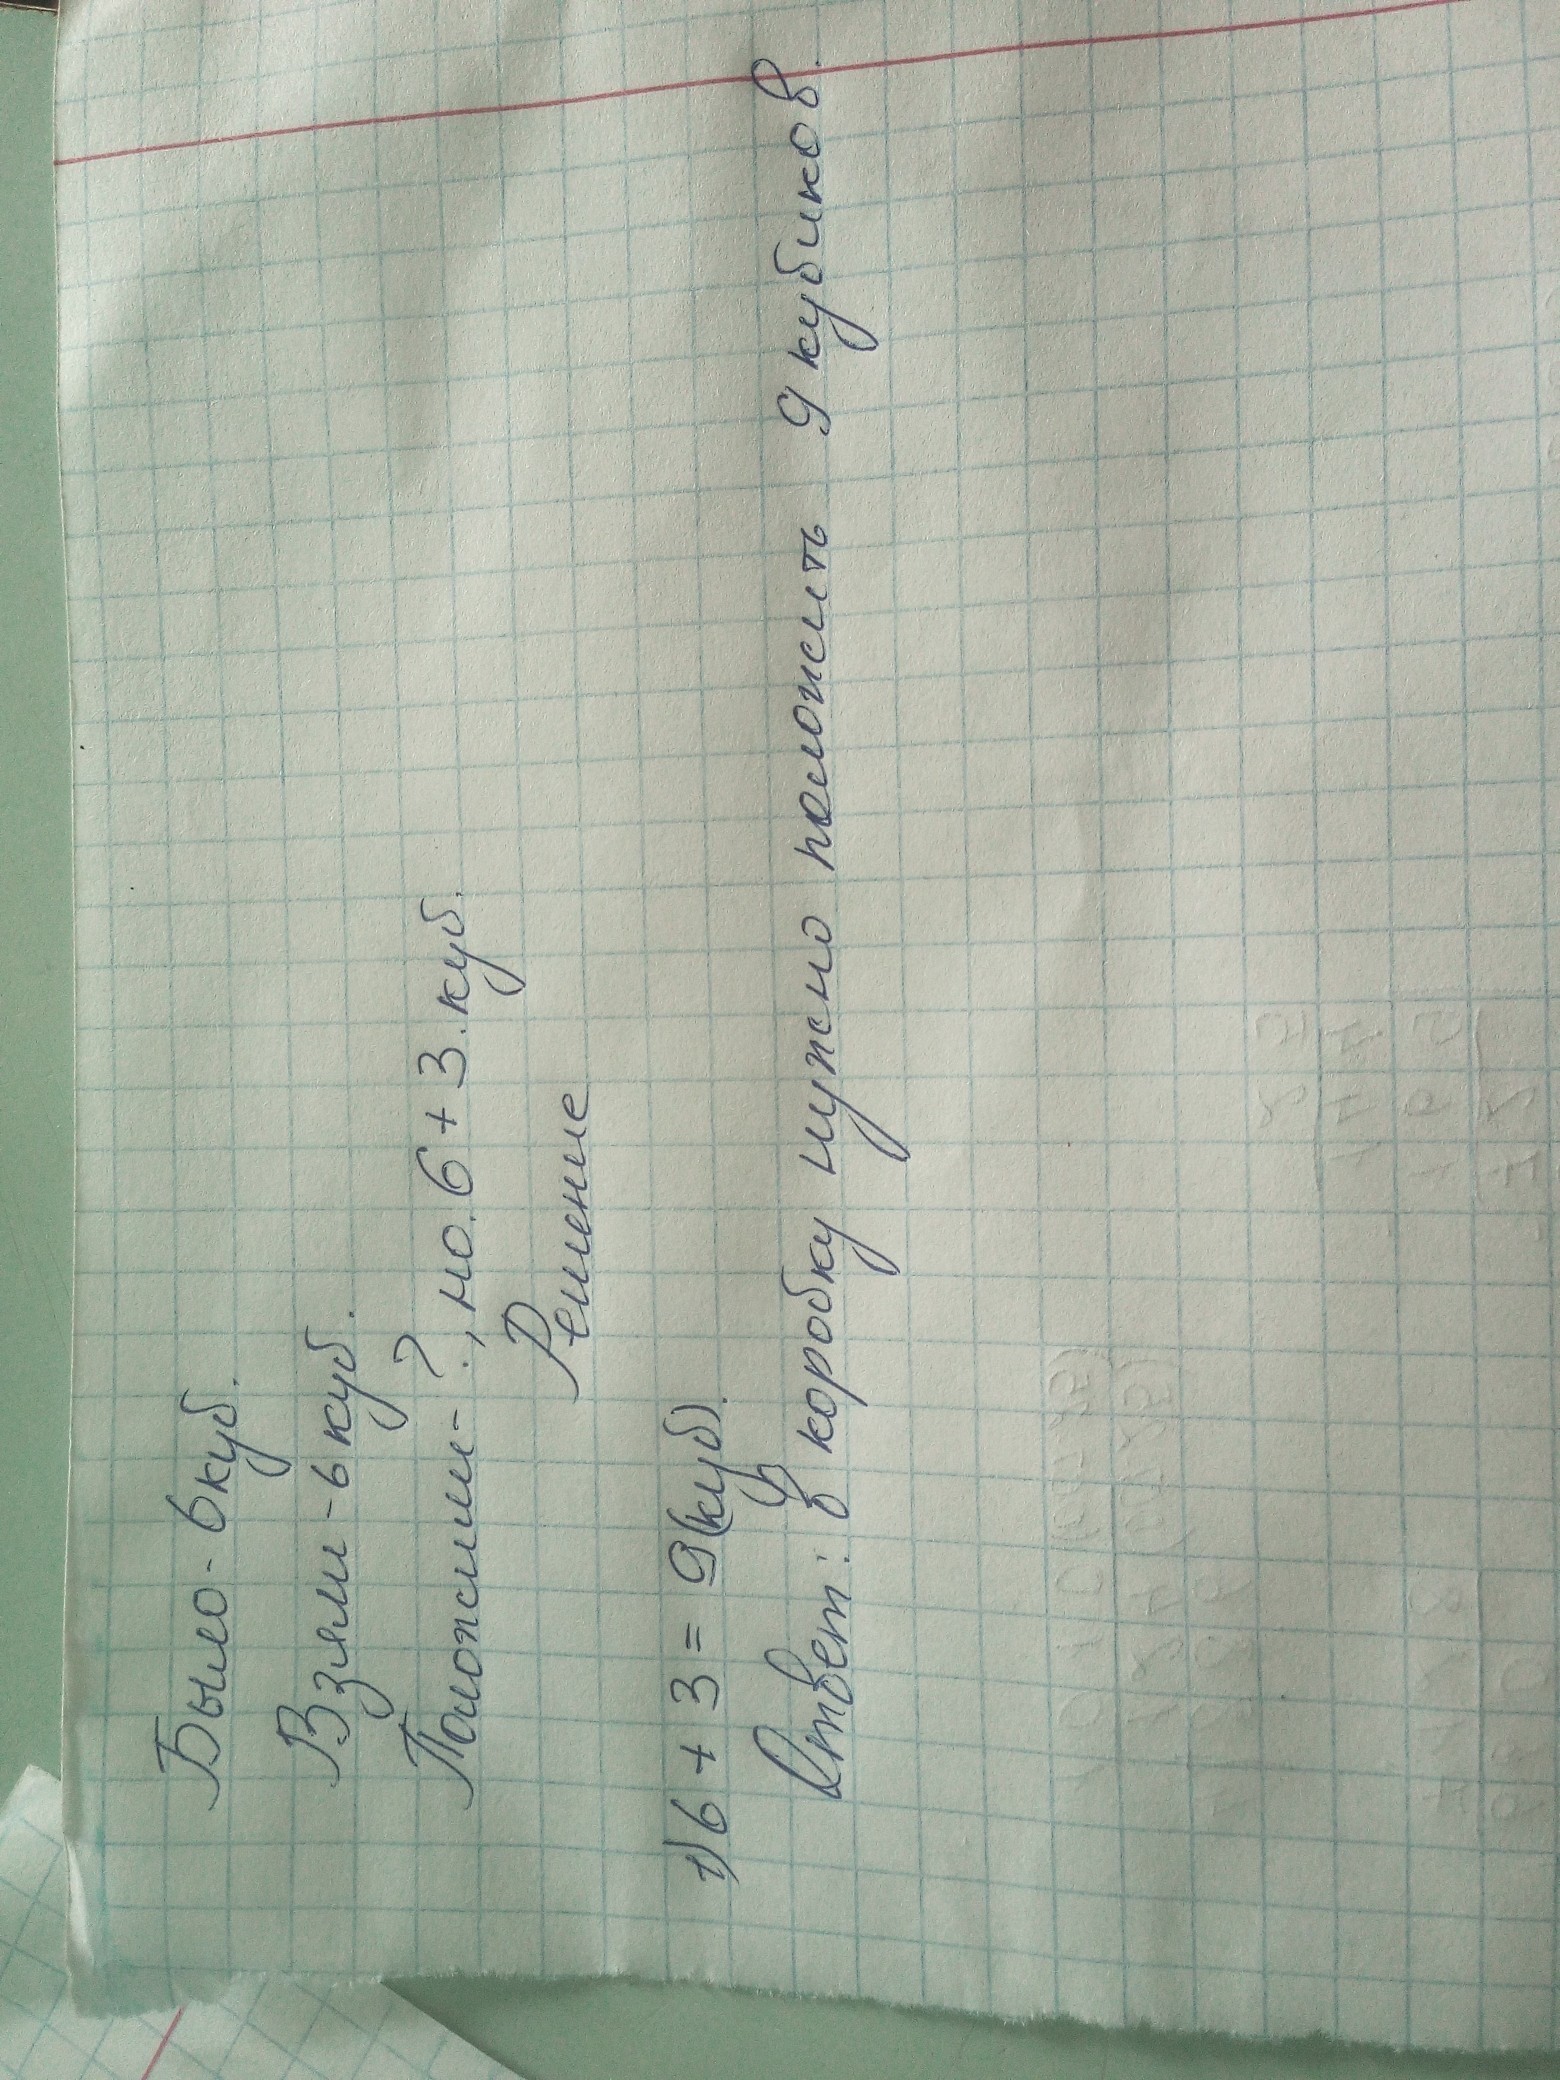 Было - 6 куб.
Взяли - 6 куб.
Положили - ?, но. 6 + 3. куб.
Решение
1) 6 + 3 = 9 (куб).
Ответ: в коробку нужно положить 9 кубиков.